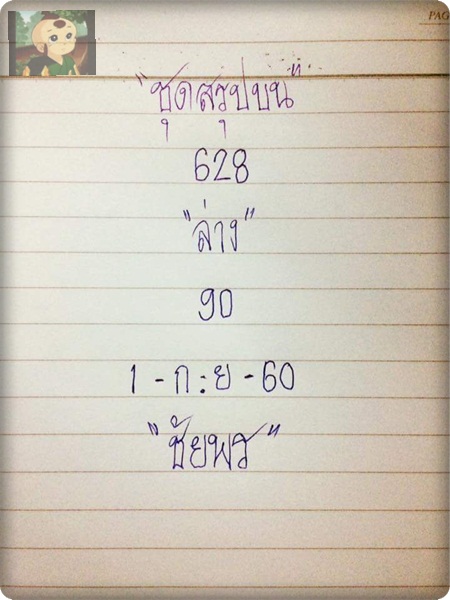 PAG
"ชุดสรุปบน"
628
"ล่าง"
90
1 - ก.ย - 60
"ชัยพร"